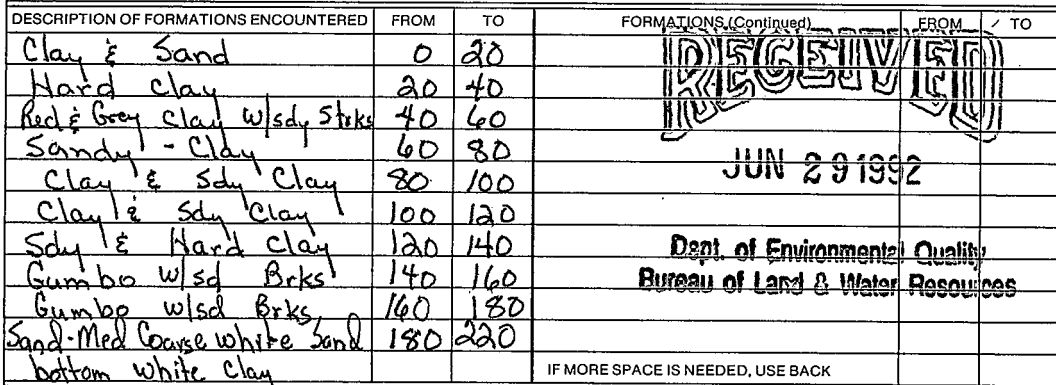 DESCRIPTION OF FORMATIONS ENCOUNTERED FROM TO
Clay & Sand 0 20
Hard Clay 20 40
Red & Grey Clay w/sdy Strks 40 60
Sandy - Clay 60 80
Clay & Sdy Clay 80 100
Clay & Sdy Clay 100 120
Sdy & Hard Clay 120 140
Gumbo w/sd Brks 140 160
Gumbo w/sd Brks 160 180
Sand-Med Coarse white Sand 180 220
bottom white Clay
FORMATIONS (Continued) FROM TO
RECEIVED
JUN 29 1992
Dept. of Environmental Quality
Bureau of Land & Water Resources
IF MORE SPACE IS NEEDED, USE BACK